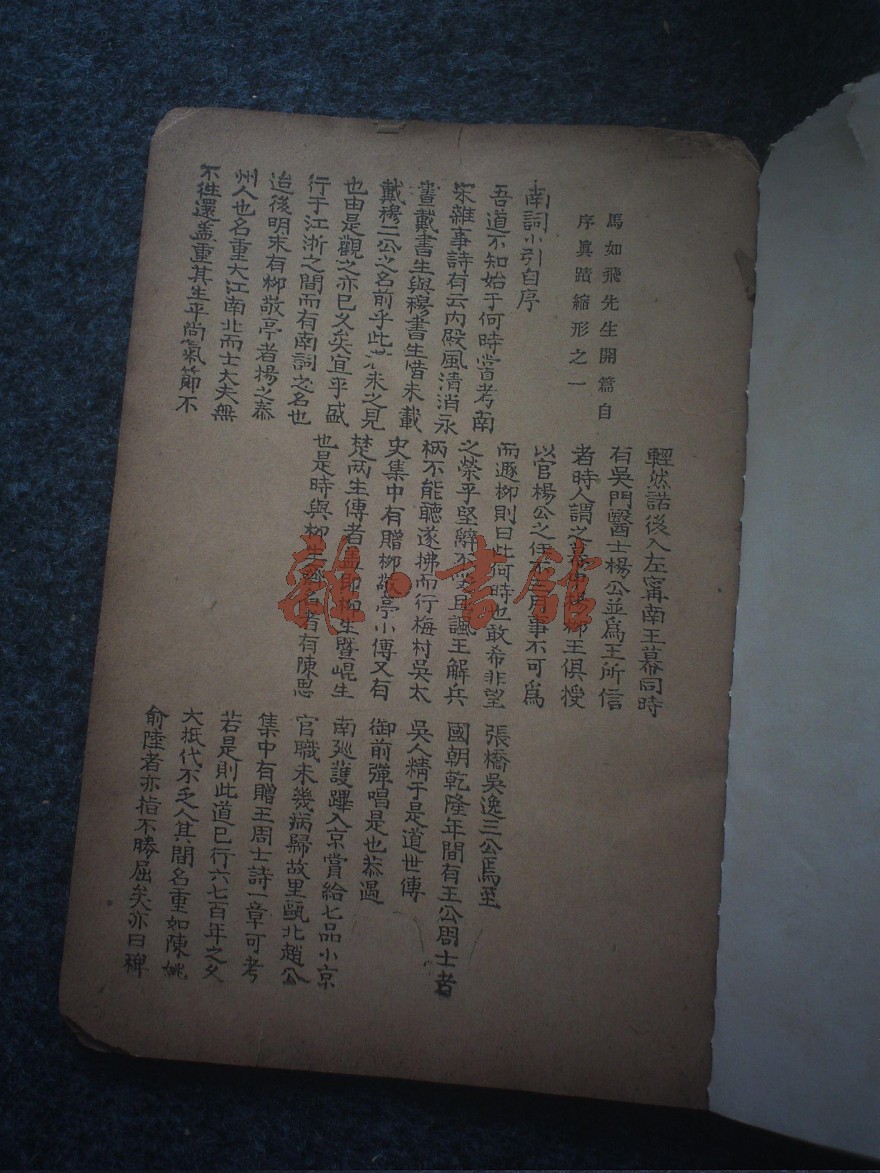 馬如飛先生開篇自
序眞蹟縮形之一
南詞小引自序
吾道不知始于何時嘗考南
宋雜事詩有云内殿風清消永
晝戴書生與穆書生惜未載
戴穆二公之名前乎此者未之見
也由是觀之亦已久矣宜乎盛
行于江浙之間而有南詞之名也
迨後明末有柳敬亭者揚之泰
州人也名重大江南北而士大夫無
不往還盖重其生平尚氣節不
輕然諾後入左甯南王幕同時
有吳門醫士楊公並爲王所信
者時人謂之楊柳王俱授
以官楊公之任不吉用事不可爲
而遯柳則曰此何時也敢希非望
之榮乎堅辭不受且諷王解兵
柄不能聽遂拂而行梅村吳太
史集中有贈柳敬亭小傳又有
楚兩生傳者盖即柳生曁崐生
也是時與柳生者有陳思
張橋吳逸三公焉至
國朝乾隆年間有王公周士者
吳人精于是道世傳
御前彈唱是也恭遇
南廵護蹕入京賞給七品小京
官職未幾病歸故里甌北趙公
集中有贈王周士詩一章可考
若是則此道已行六七百年之久
大抵代不乏人其間名重如陳姚
俞陸者亦指不勝屈矣亦曰稗
雜·書館